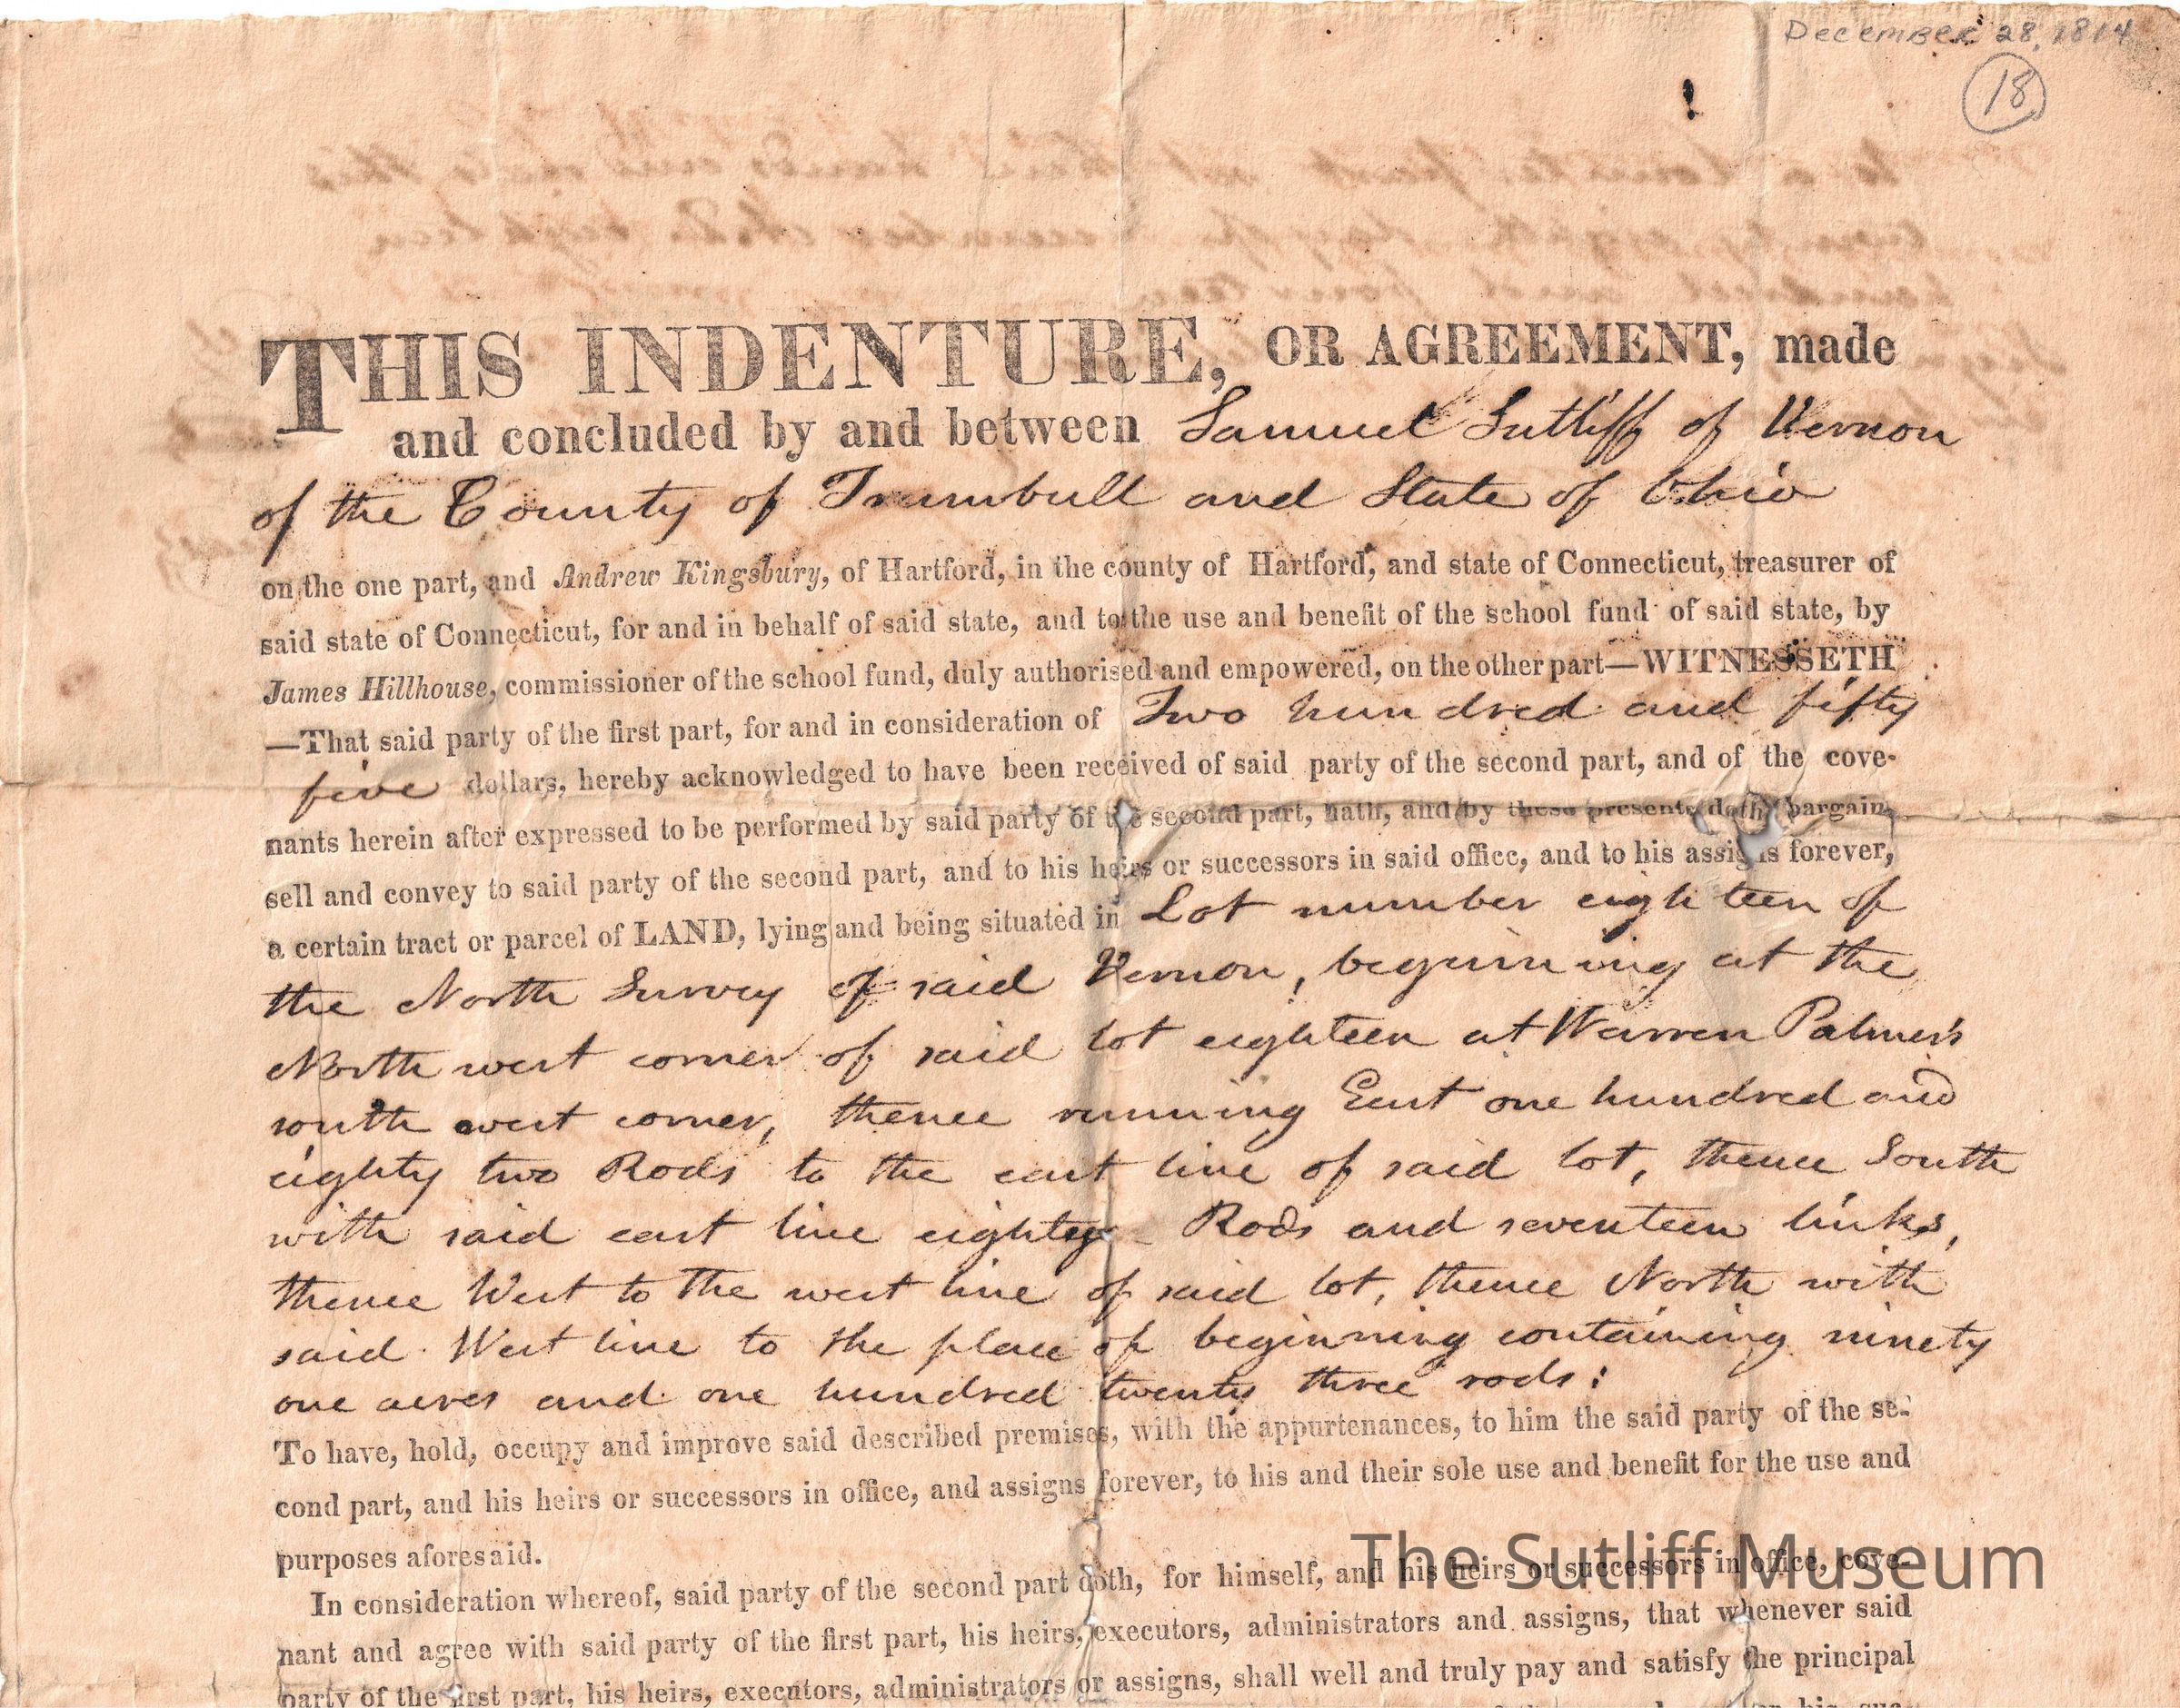 December 28, 1814
18
THIS INDENTURE, OR AGREEMENT, made
and concluded by and between Samuel Sutliff of Vernon
of the County of Trumbull and State of Ohio
on the one part, and Andrew Kingsbury, of Hartford, in the county of Hartford, and state of Connecticut, treasurer of
said state of Connecticut, for and in behalf of said state, and to the use and benefit of the school fund of said state, by
James Hillhouse, commissioner of the school fund, duly authorised and empowered, on the other part—WITNESSETH
—That said party of the first part, for and in consideration of Two hundred and fifty
five dollars, hereby acknowledged to have been received of said party of the second part, and of the cove-
nants herein after expressed to be performed by said party of the second part, hath, and by these presents doth bargain,
sell and convey to said party of the second part, and to his heirs or successors in said office, and to his assigns forever,
a certain tract or parcel of LAND, lying and being situated in Lot number eighteen of
the North Survey of said Vernon, beginning at the
North west corner of said lot eighteen at Warren Palmer's
south west corner, thence running East one hundred and
eighty two Rods to the east line of said lot, thence South
with said east line eighty Rods and seventeen links,
thence West to the west line of said lot, thence North with
said West line to the place of beginning containing ninety
one acres and one hundred twenty three rods:
To have, hold, occupy and improve said described premises, with the appurtenances, to him the said party of the se-
cond part, and his heirs or successors in office, and assigns forever, to his and their sole use and benefit for the use and
purposes aforesaid.
In consideration whereof, said party of the second part doth, for himself, and his heirs or successors in office, cove-
nant and agree with said party of the first part, his heirs, executors, administrators and assigns, that whenever said
party of the first part, his heirs, executors, administrators or assigns, shall well and truly pay and satisfy the principal
The Sutliff Museum